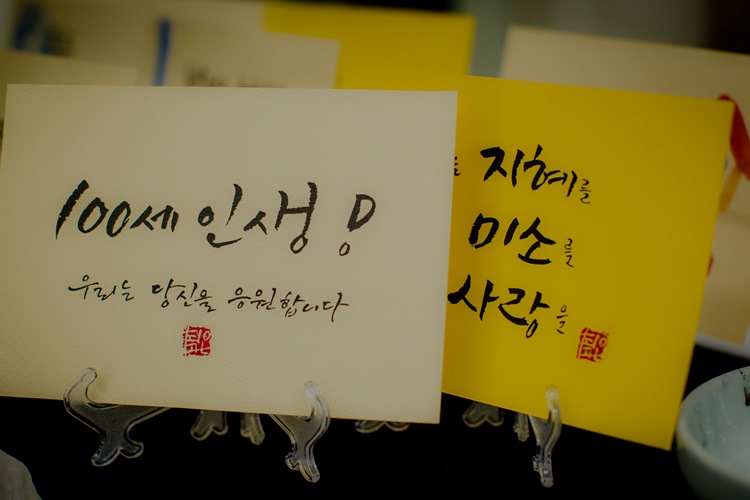 100세 인생!
우리는 당신을 응원합니다
지혜를
미소를
사랑을